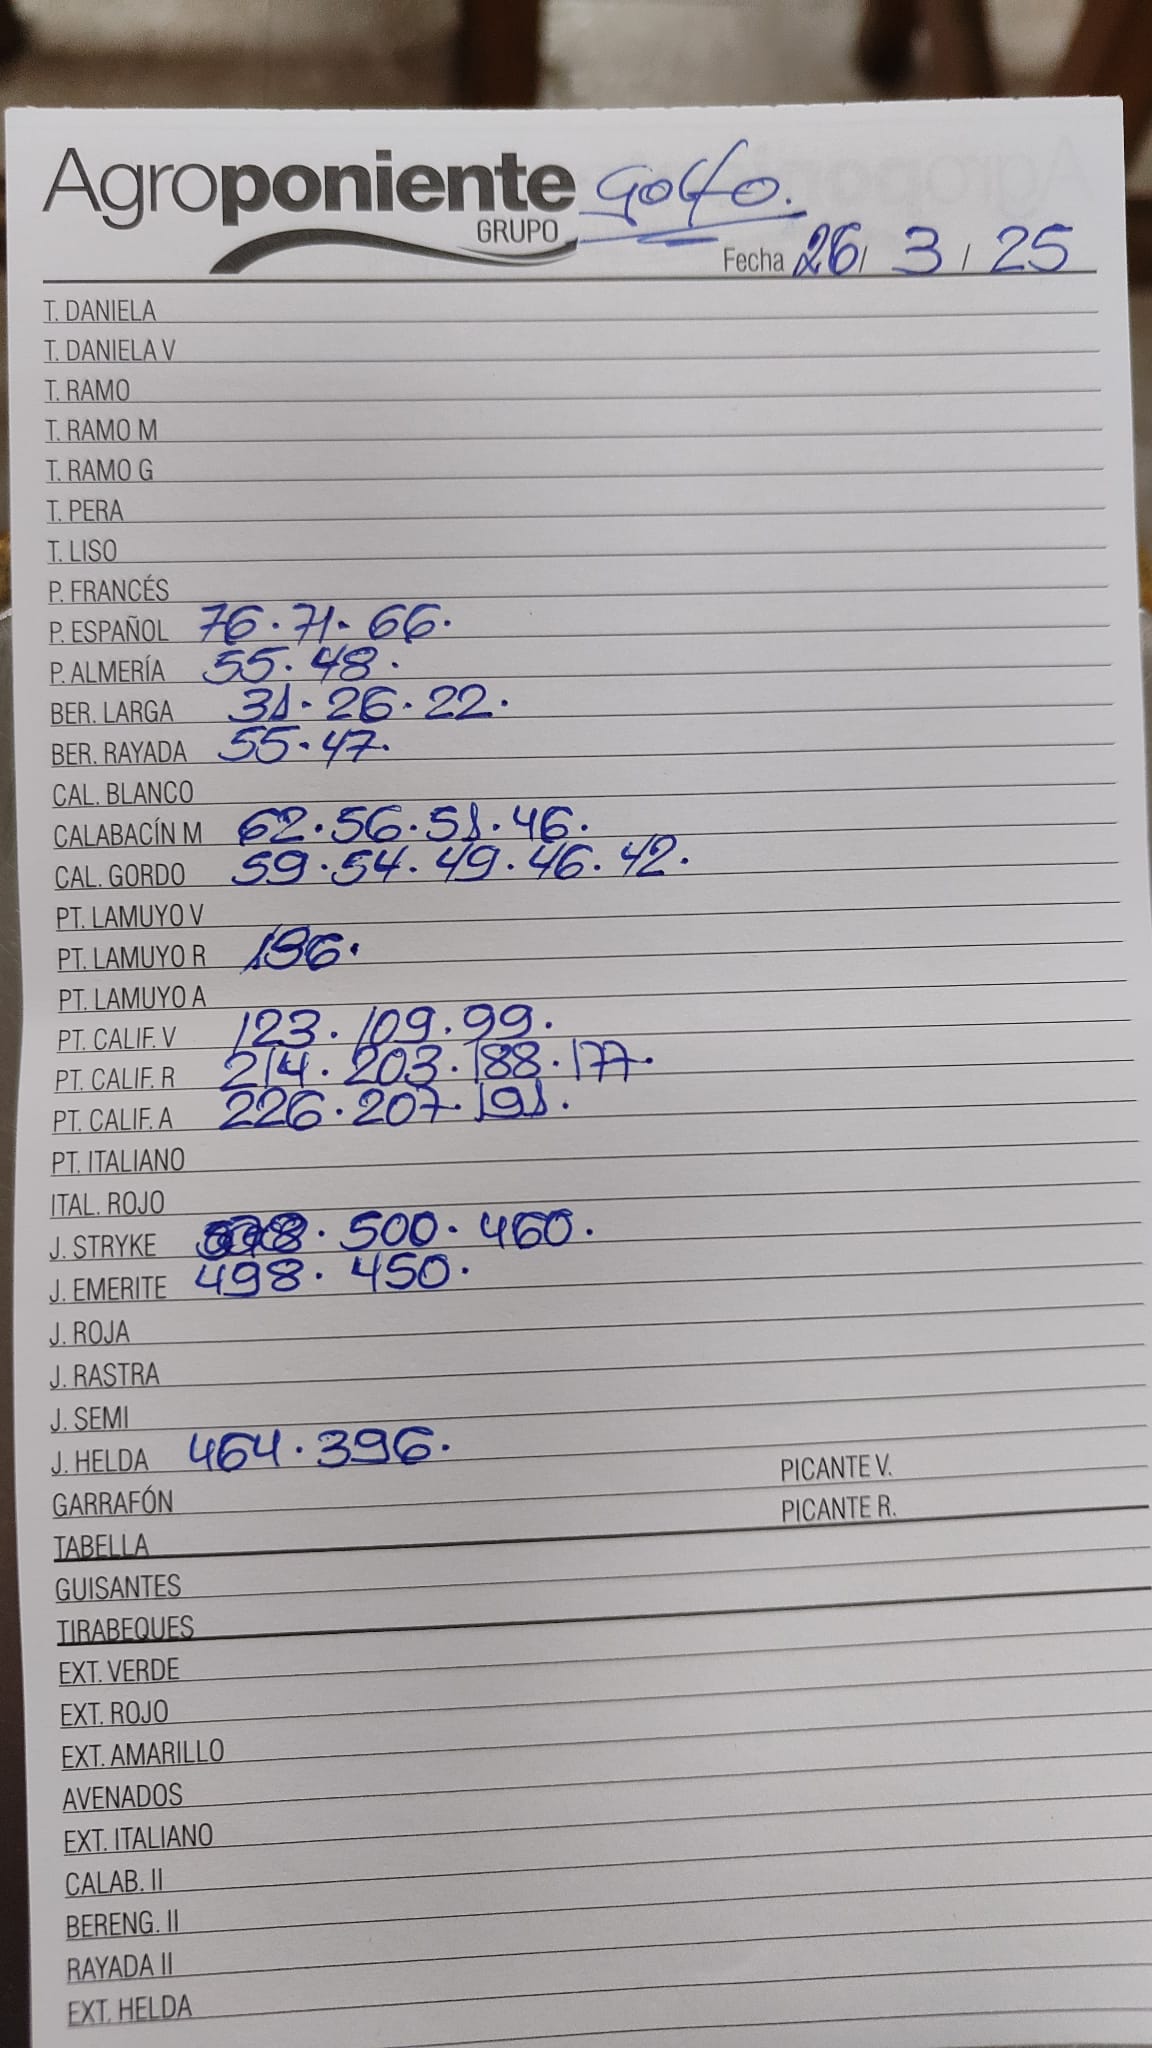 Agroponiente golfo.
GRUPO
Fecha 26 / 3 / 25
T. DANIELA
T. DANIELA V
T. RAMO
T. RAMO M
T. RAMO G
T. PERA
T. LISO
P. FRANCÉS
P. ESPAÑOL 76. 71. 66.
P. ALMERÍA 55. 48.
BER. LARGA 31. 26. 22.
BER. RAYADA 55. 47.
CAL. BLANCO
CALABACÍN M 62. 56. 51. 46.
CAL. GORDO 59. 54. 49. 46. 42.
PT. LAMUYO V
PT. LAMUYO R 196.
PT. LAMUYO A
PT. CALIF. V 123. 109. 99.
PT. CALIF. R 214. 203. 188. 177.
PT. CALIF. A 226. 207. 191.
PT. ITALIANO
ITAL. ROJO
J. STRYKE 500. 460.
J. EMERITE 498. 450.
J. ROJA
J. RASTRA
J. SEMI
J. HELDA 464. 396.
PICANTE V.
GARRAFÓN
PICANTE R.
TABELLA
GUISANTES
TIRABEQUES
EXT. VERDE
EXT. ROJO
EXT. AMARILLO
AVENADOS
EXT. ITALIANO
CALAB. II
BERENG. II
RAYADA II
EXT. HELDA